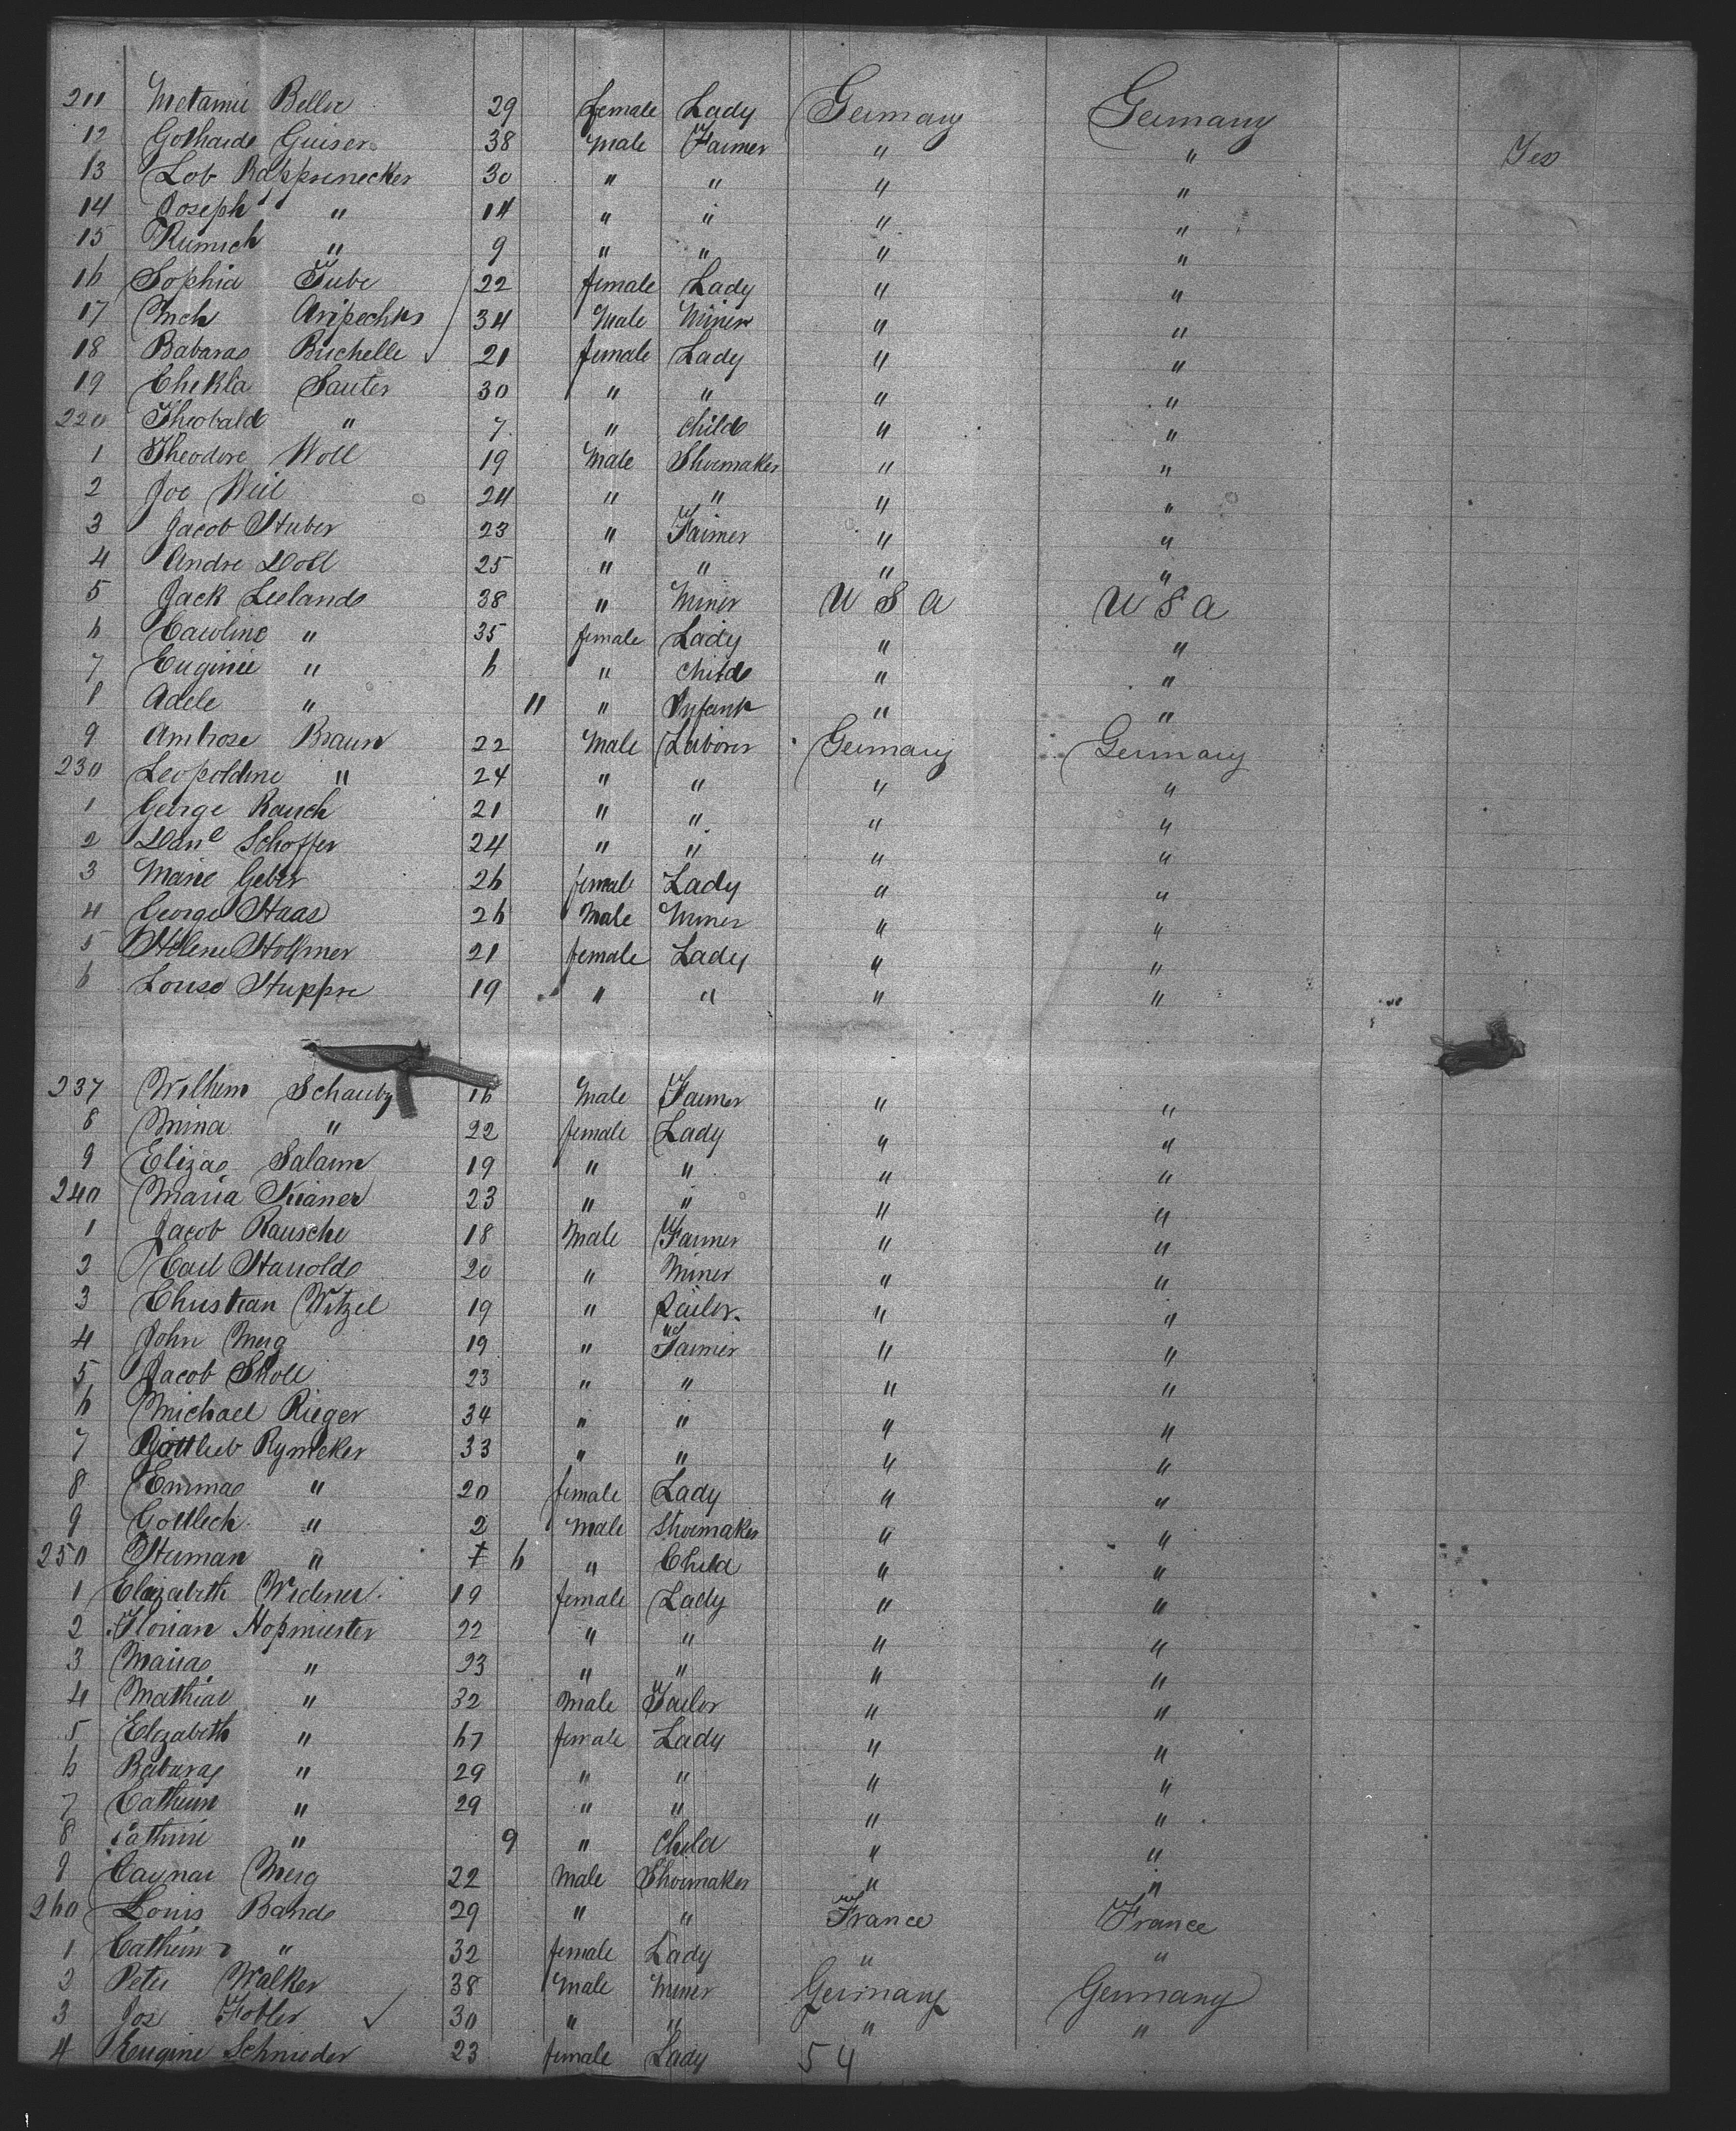 211 Metamie Beller 29 female Lady Germany Germany
12 Gothard Guiser 38 Male Farmer " " Yes
13 Lob Rapprenecker 30 " " " "
14 Joseph " 14 " " " "
15 " 9 " " " "
16 Sophia Tube 22 female Lady " "
17 34 Male Miner " "
18 Babara Buchelle ✓ 21 female Lady " "
19 Thekla Sauter 30 " " " "
220 Theobald " 7 " child " "
1 Theodore Woll 19 Male Shoemaker " "
2 Joe Weil 24 " " " "
3 Jacob Huber 23 " Farmer " "
4 Andre Doll 25 " " " "
5 Jack Leland 38 " Miner U S A U S A
6 Caroline " 35 female Lady " "
7 Euginie " 6 " child " "
8 Adele " 11 " Infant " "
9 Ambrose Braun 22 Male Laborer Germany Germany
230 Leopoldine " 24 " " " "
1 George Rauch 21 " " " "
2 Danl Schoffer 24 " " " "
3 Marie Geber 26 female Lady " "
4 George Haas 26 Male Miner " "
5 Helene Hollmer 21 female Lady " "
6 Louse Huppre 19 " " " "
237 Wilhem Schauby 16 Male Farmer " "
8 Mina " 22 female Lady " "
9 Eliza Salamn 19 " " " "
240 Maria Kraner 23 " " " "
1 Jacob Rausche 18 Male Farmer " "
2 Carl Harrold 20 " Miner " "
3 Christian Witzel 19 " Tailor " "
4 John Merg 19 " Farmer " "
5 Jacob Sholl 23 " " " "
6 Michael Rieger 34 " " " "
7 Gottlieb Rymeker 33 " " " "
8 Emma " 20 female Lady " "
9 Gottlech " 2 Male Shoemaker " "
250 Herman " 6 " Child " "
1 Elizabeth Widener 19 female Lady " "
2 Florian Hopmiester 22 " " " "
3 Maria " 23 " " " "
4 Mathias " 32 Male Tailor " "
5 Elizabeth " 67 female Lady " "
6 Babara " 29 " " " "
7 Catherin " 29 " " " "
8 Cathrine " 9 " Child " "
9 Merg 22 Male Shoemaker " "
260 Louis Band 29 " " France France
1 Catherin " 32 female Lady " "
2 Peter Walker 38 Male Miner Germany Germany
3 Jos Kobler ✓ 30 " " " "
4 Eugine Schnieder 23 female Lady 54